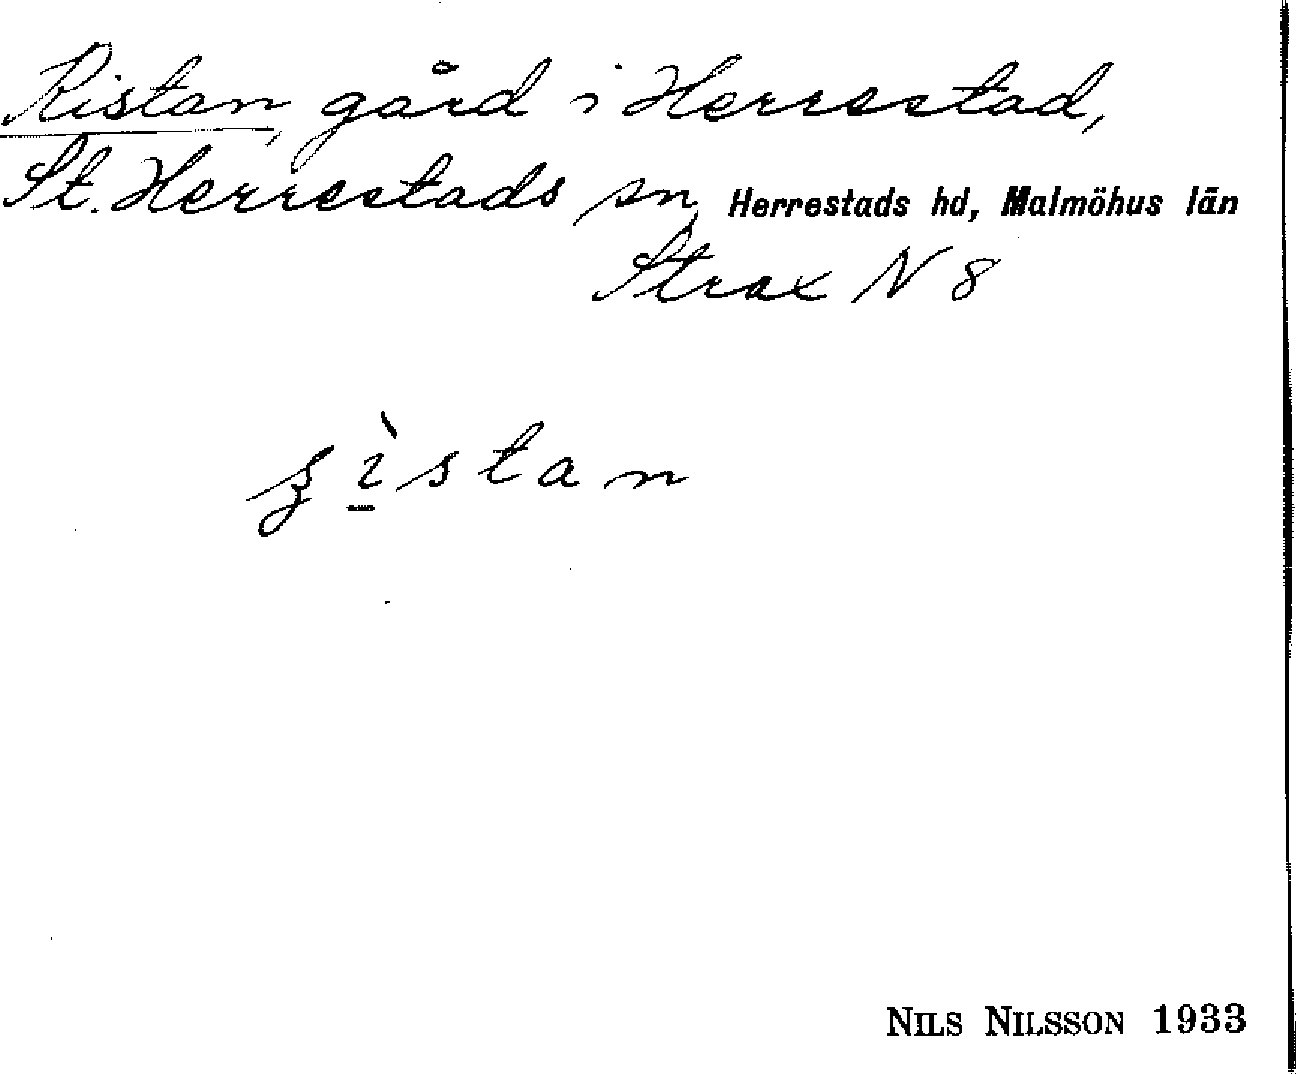 Ristan, gård i Herrestad,
St. Herrestads sn, Herrestads hd, Malmöhus län
Strax N 8
ʒì̱stan
NILS NILSSON 1933